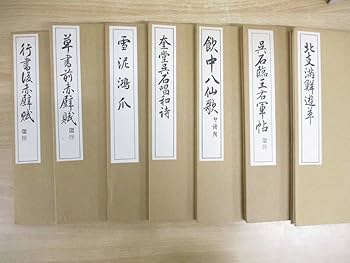 北支満鮮遊草
呉石臨王右軍帖
飲中八仙歌
奎堂呉石唱和诗
雪泥鴻爪
草書前赤壁賦
行書後赤壁賦